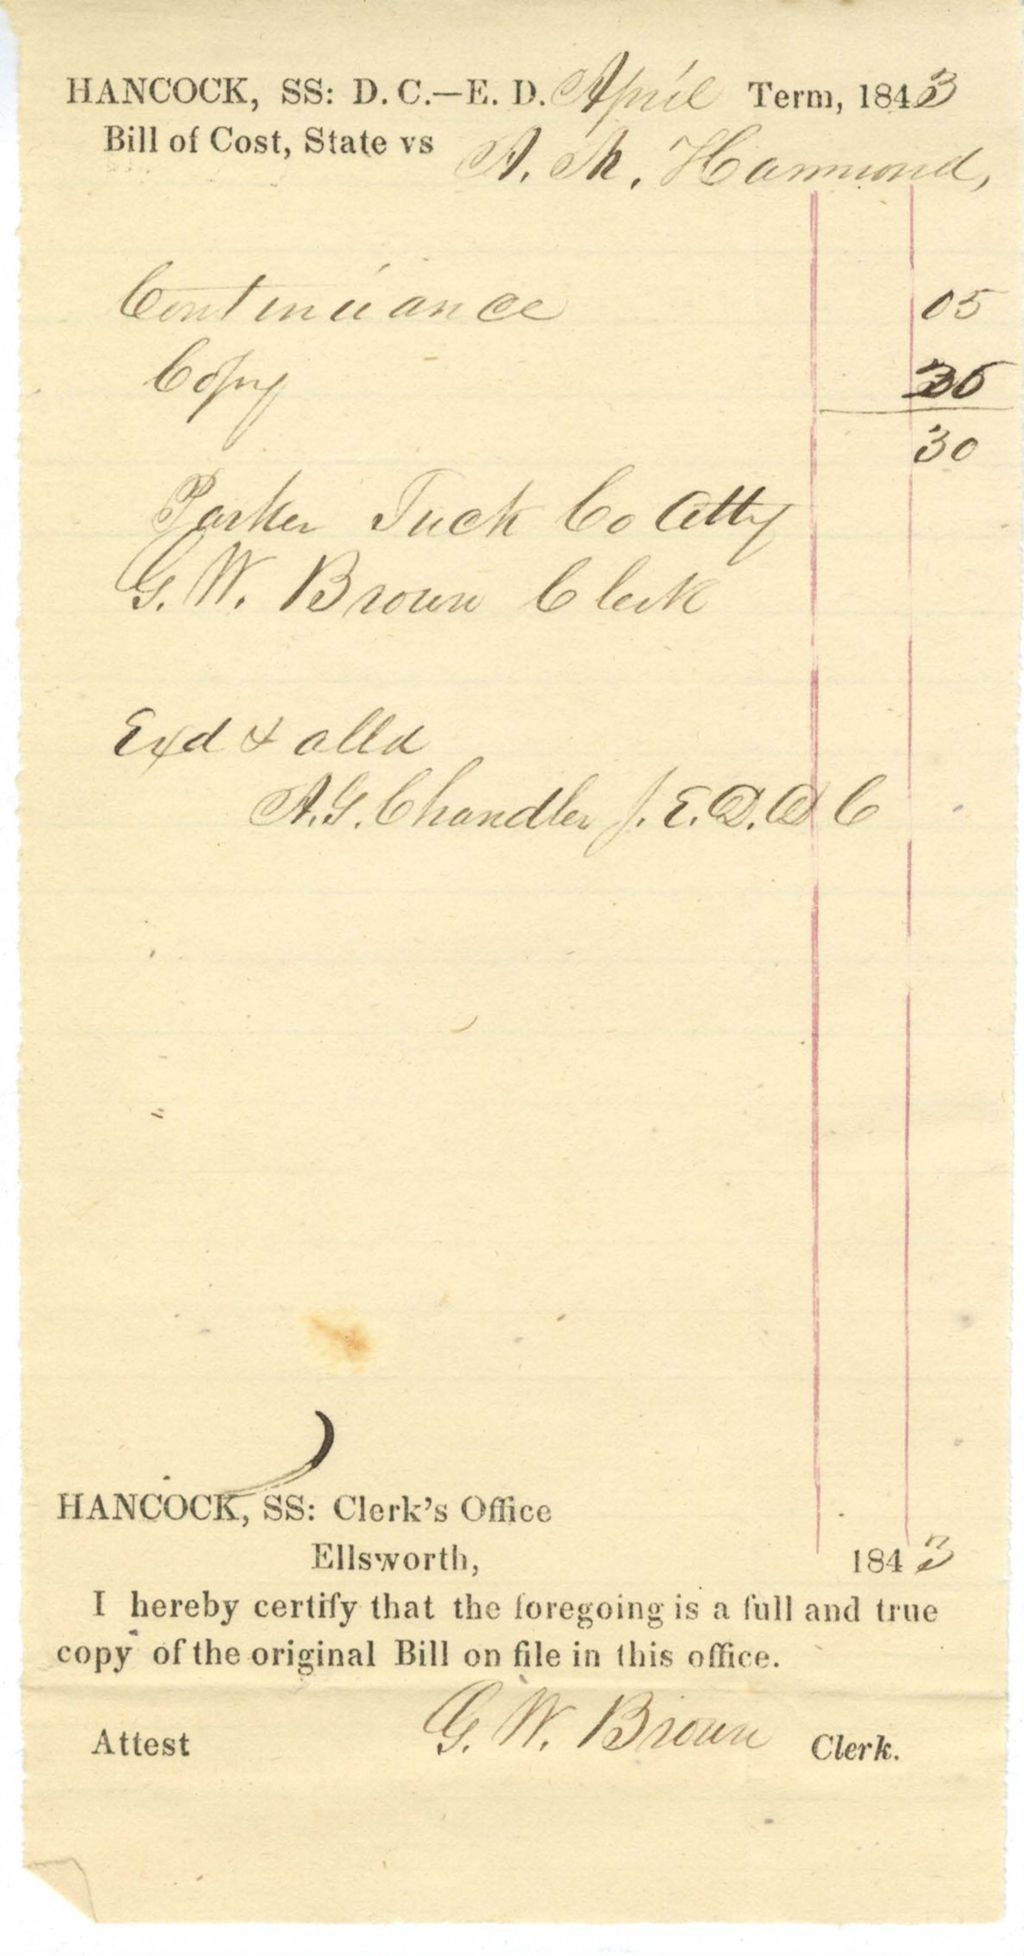 HANCOCK, SS: D. C.—E. D. April Term, 1843
Bill of Cost, State vs A. M. Hammond,
Continuance 05
Copy 25
30
Parker Tuck Co Atty
G. W. Brown Clerk
Exd & alld
A. G. Chandler J. E. D. D C
HANCOCK, SS: Clerk's Office
Ellsworth, 1843
I hereby certify that the foregoing is a full and true
copy of the original Bill on file in this office.
Attest G. W. Brown Clerk.